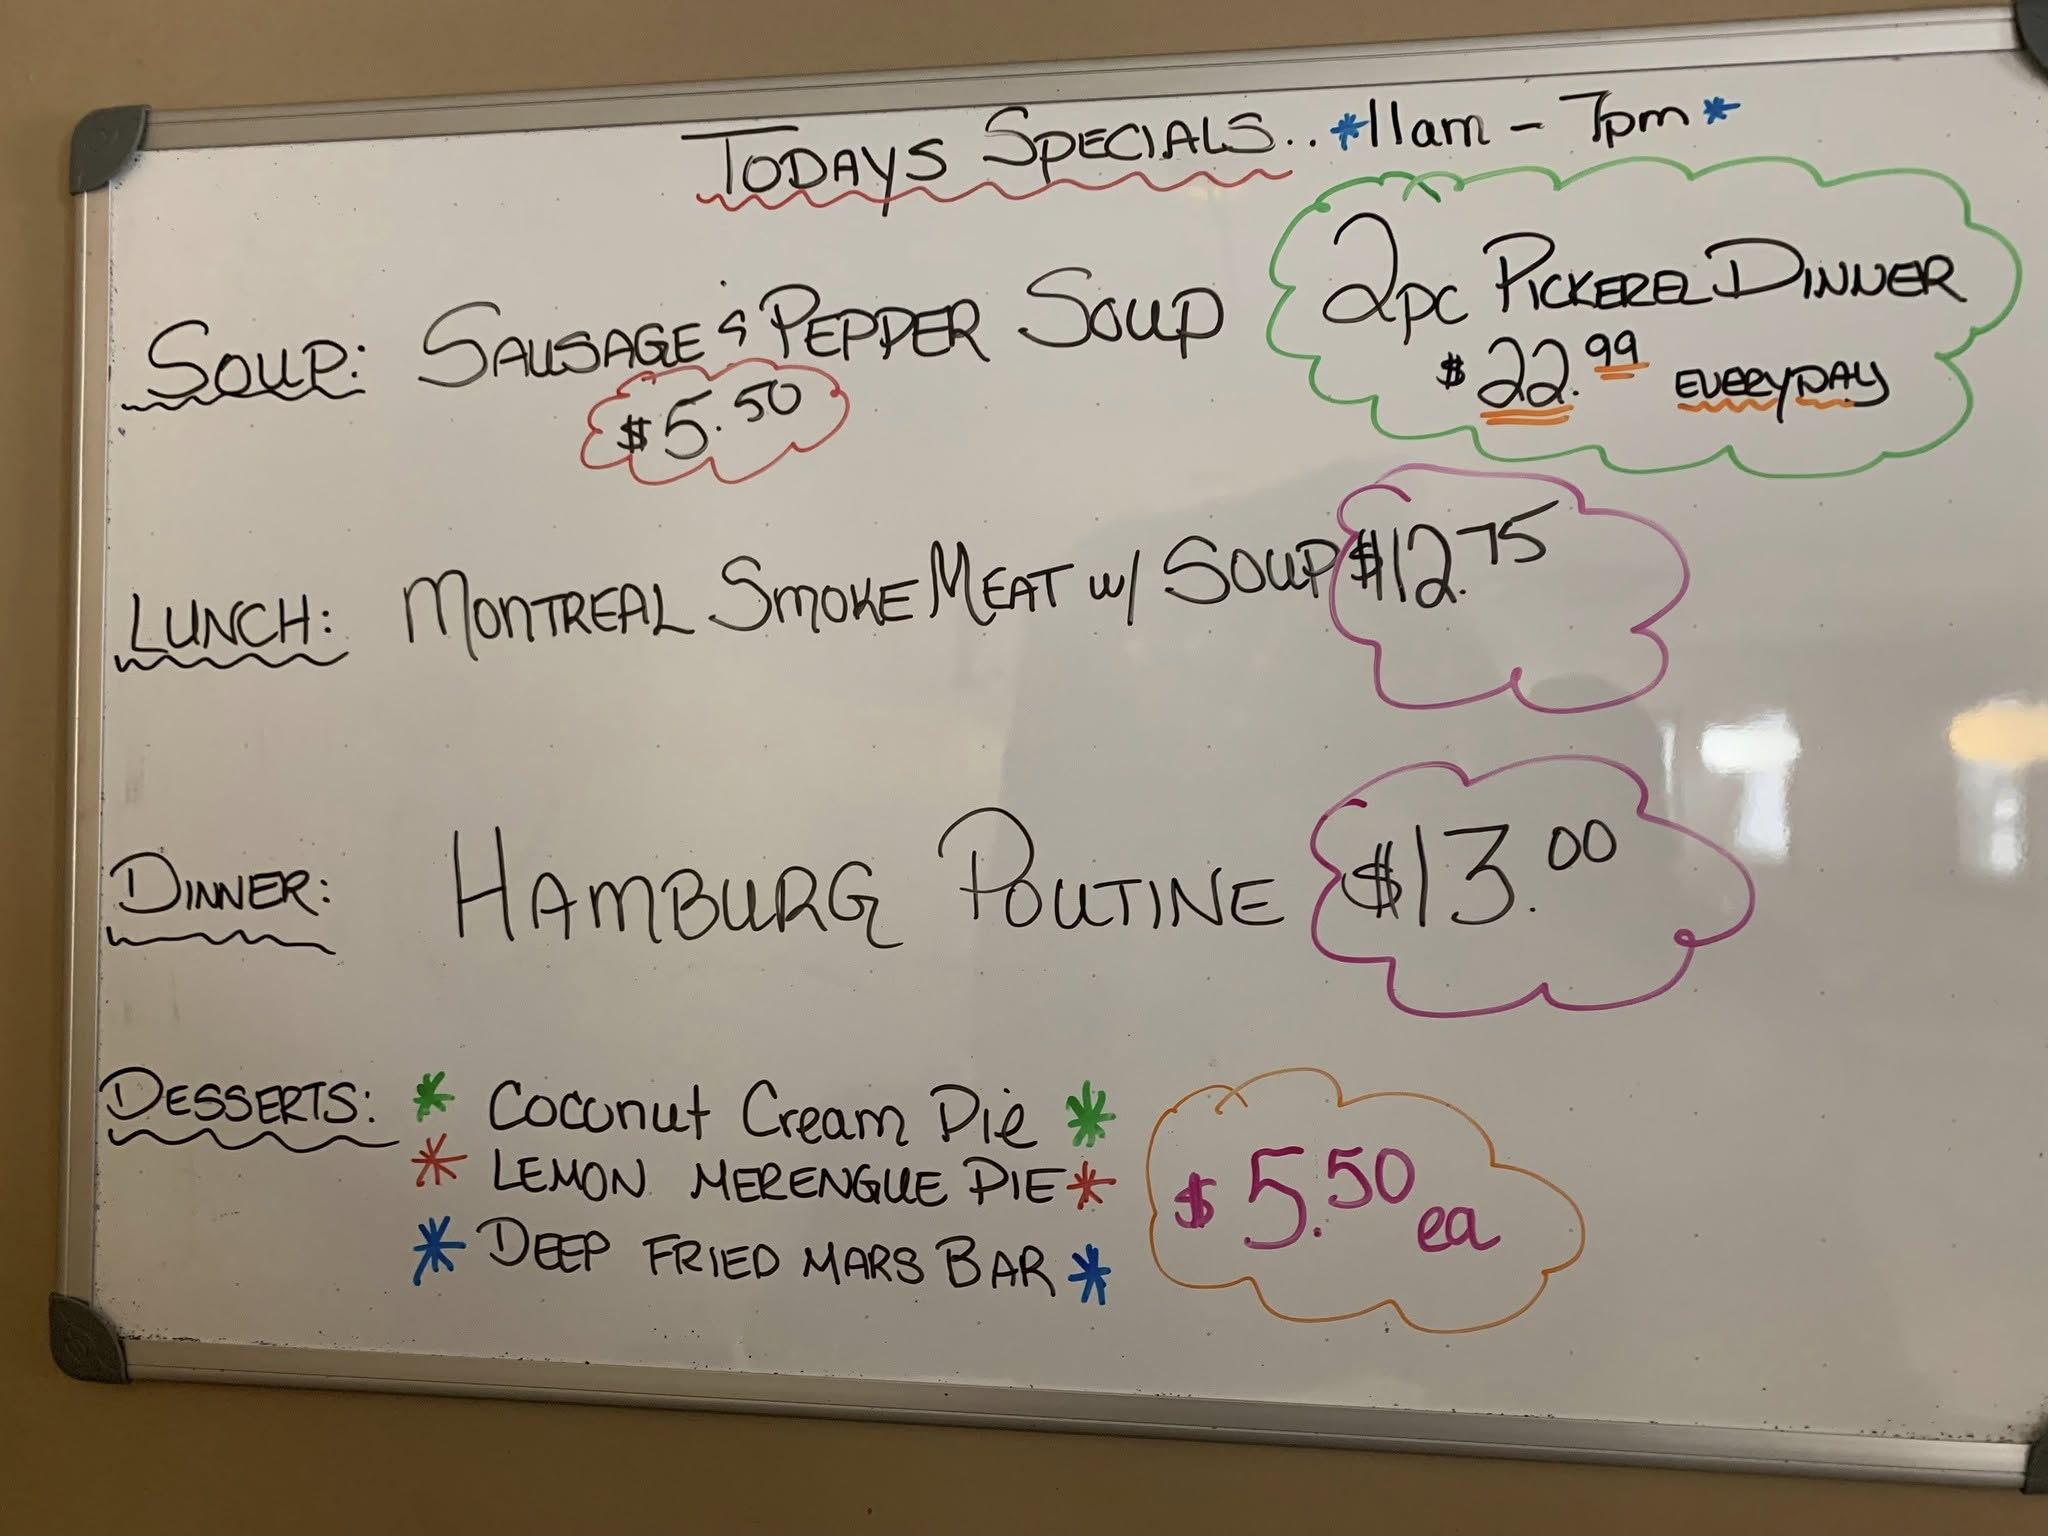 TODAYS SPECIALS.. *11am - 7pm*
2pc PICKEREL DINNER
$22.99 EVERYDAY
SOUP: SAUSAGE & PEPPER SOUP
$5.50
LUNCH: MONTREAL SMOKE MEAT w/ SOUP $12.75
DINNER: HAMBURG POUTINE $13.00
DESSERTS: * Coconut Cream Pie *
* LEMON MERENGUE PIE *
* DEEP FRIED MARS BAR *
$5.50 ea